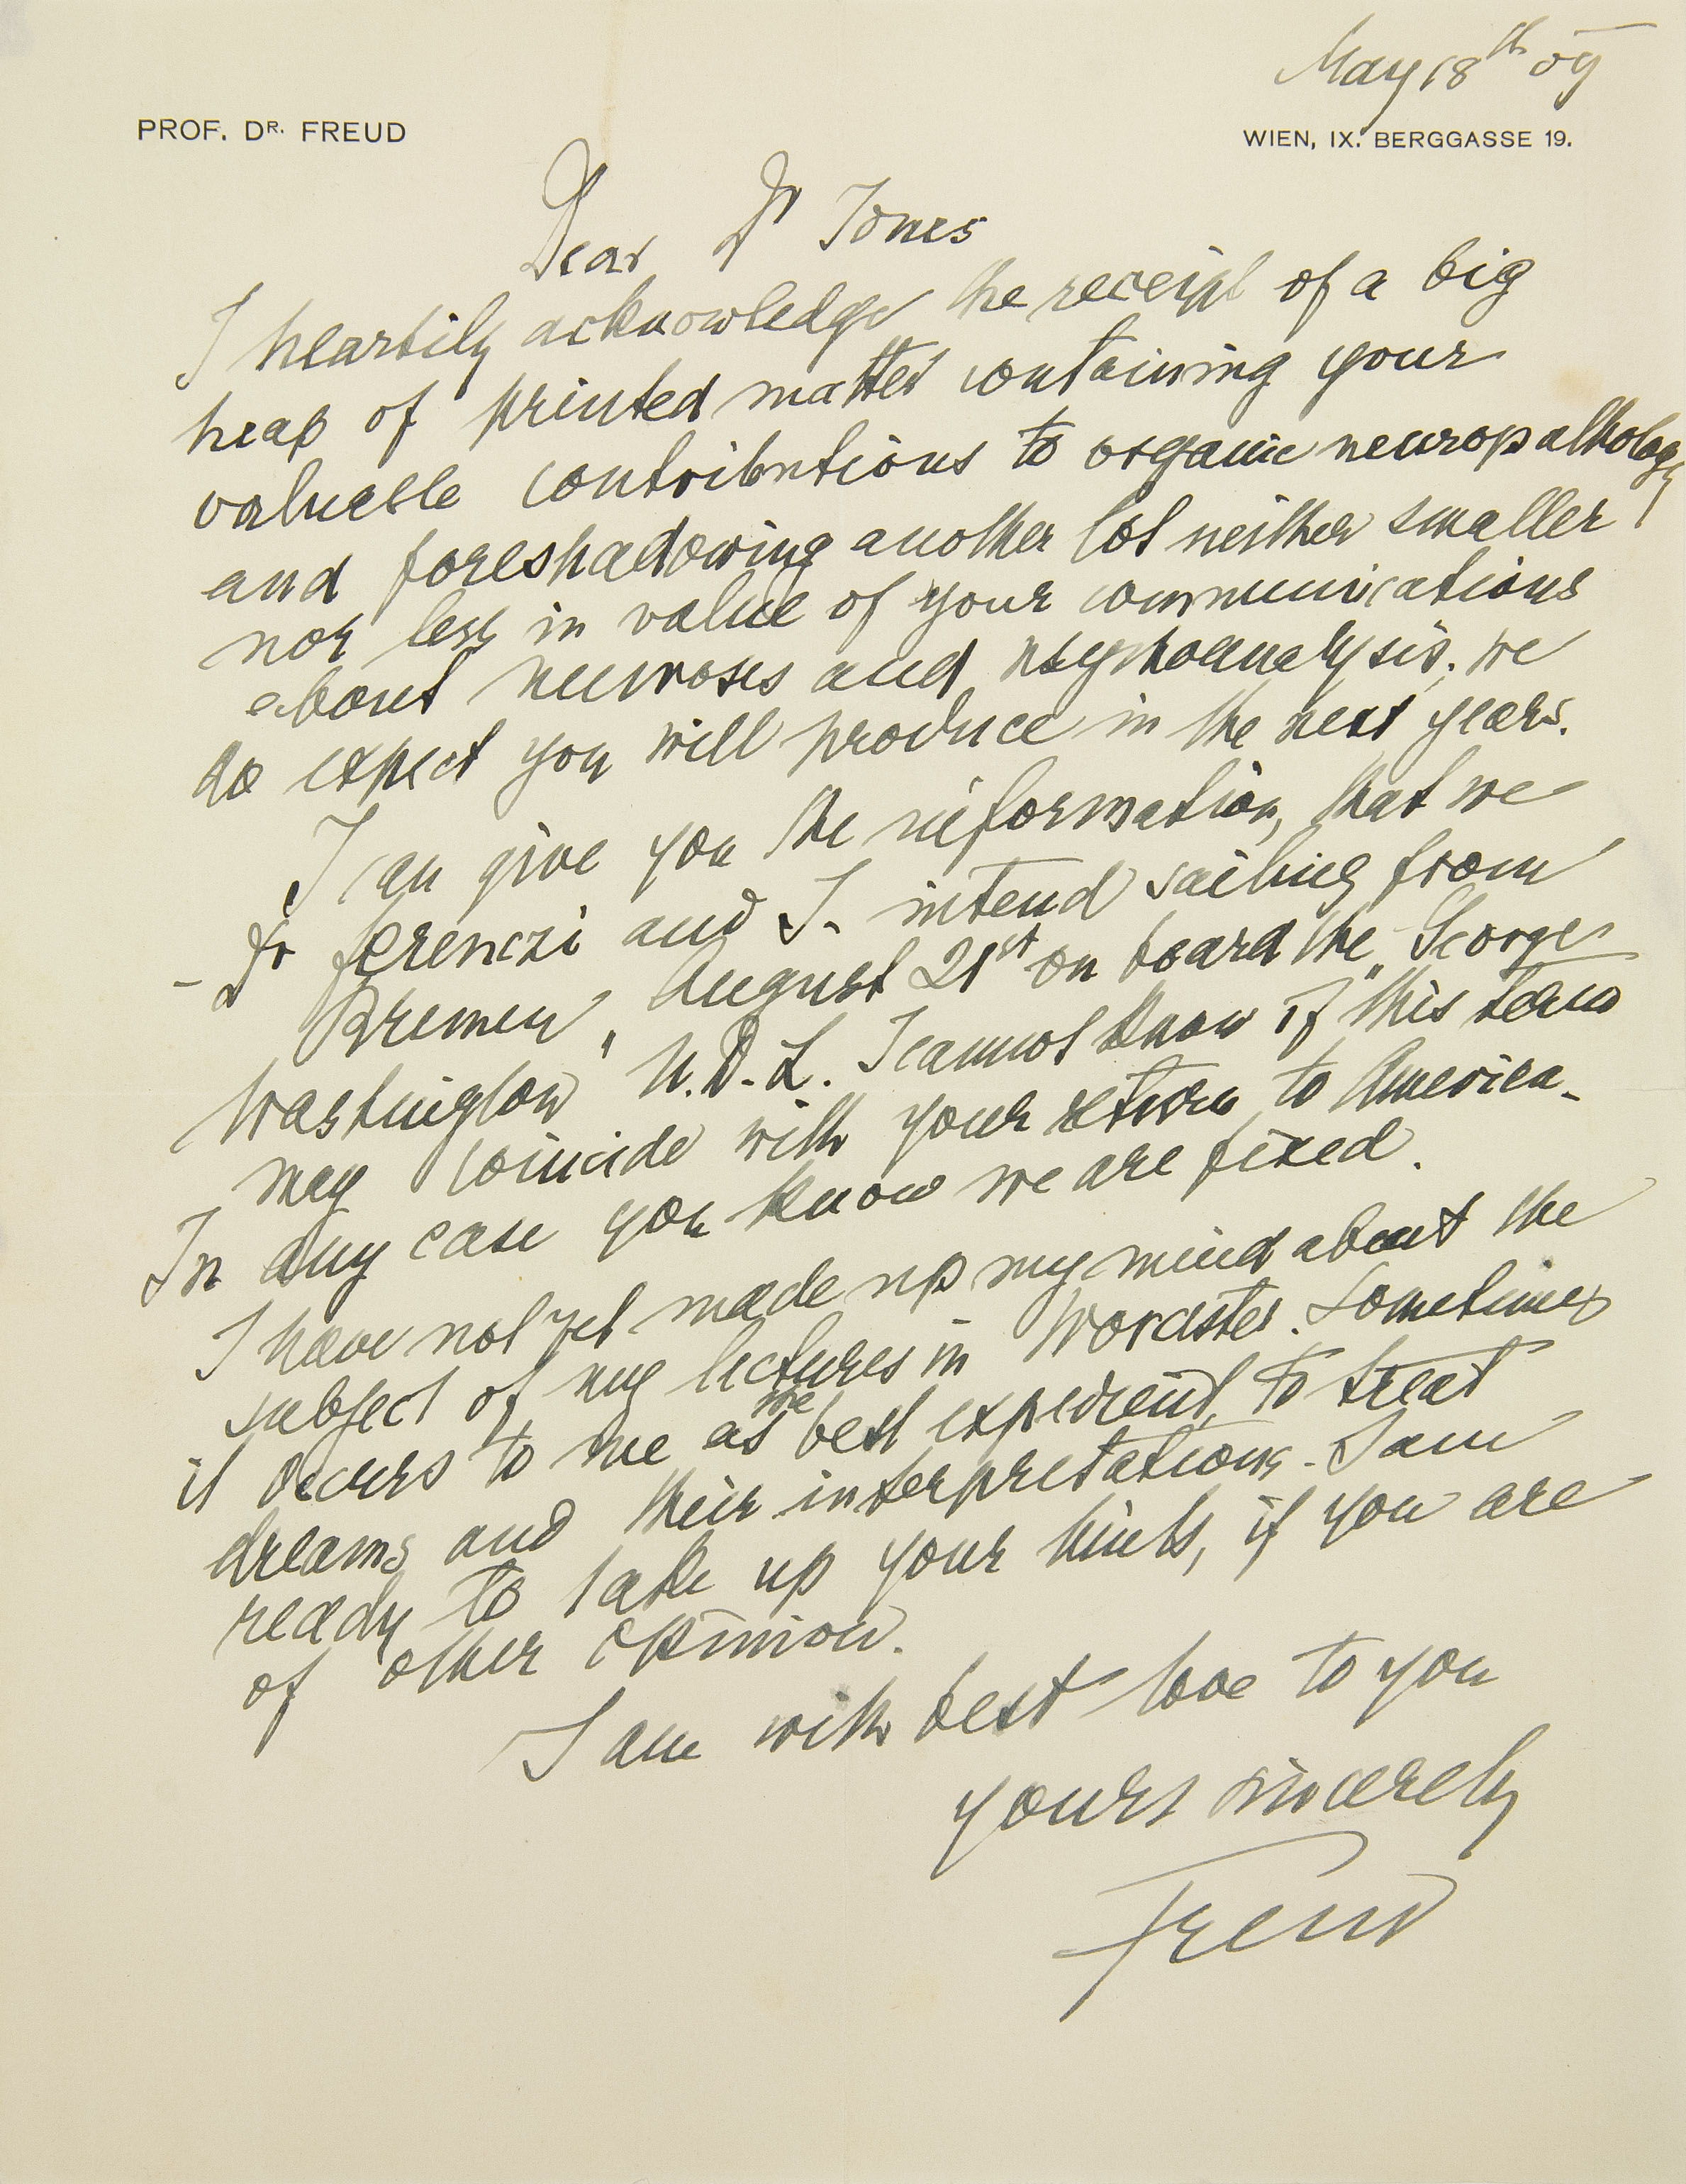 May 18th 09
PROF. DR. FREUD
WIEN, IX. BERGGASSE 19.
Dear Dr Jones
I heartily acknowledge the receipt of a big
heap of printed matter containing your
valuable contributions to organic neuropathology
and foreshadowing another lot neither smaller
nor less in value of your communications
about neuroses and psychoanalysis, we
do expect you will produce in the next years.
I can give you the information, that we
- Dr Ferenczi and I - intend sailing from
Bremen August 21st on board the "George
Washington" N.D.L. I cannot know if this term
may coincide with your return to America.
In any case you know we are fixed.
I have not yet made up my mind about the
subject of my lectures in Worcester. Sometimes
it occurs to me as the best expedient, to treat
dreams and their interpretations. I am
ready to take up your hints, if you are
of other opinion.
I am with best love to you
yours sincerely
Freud